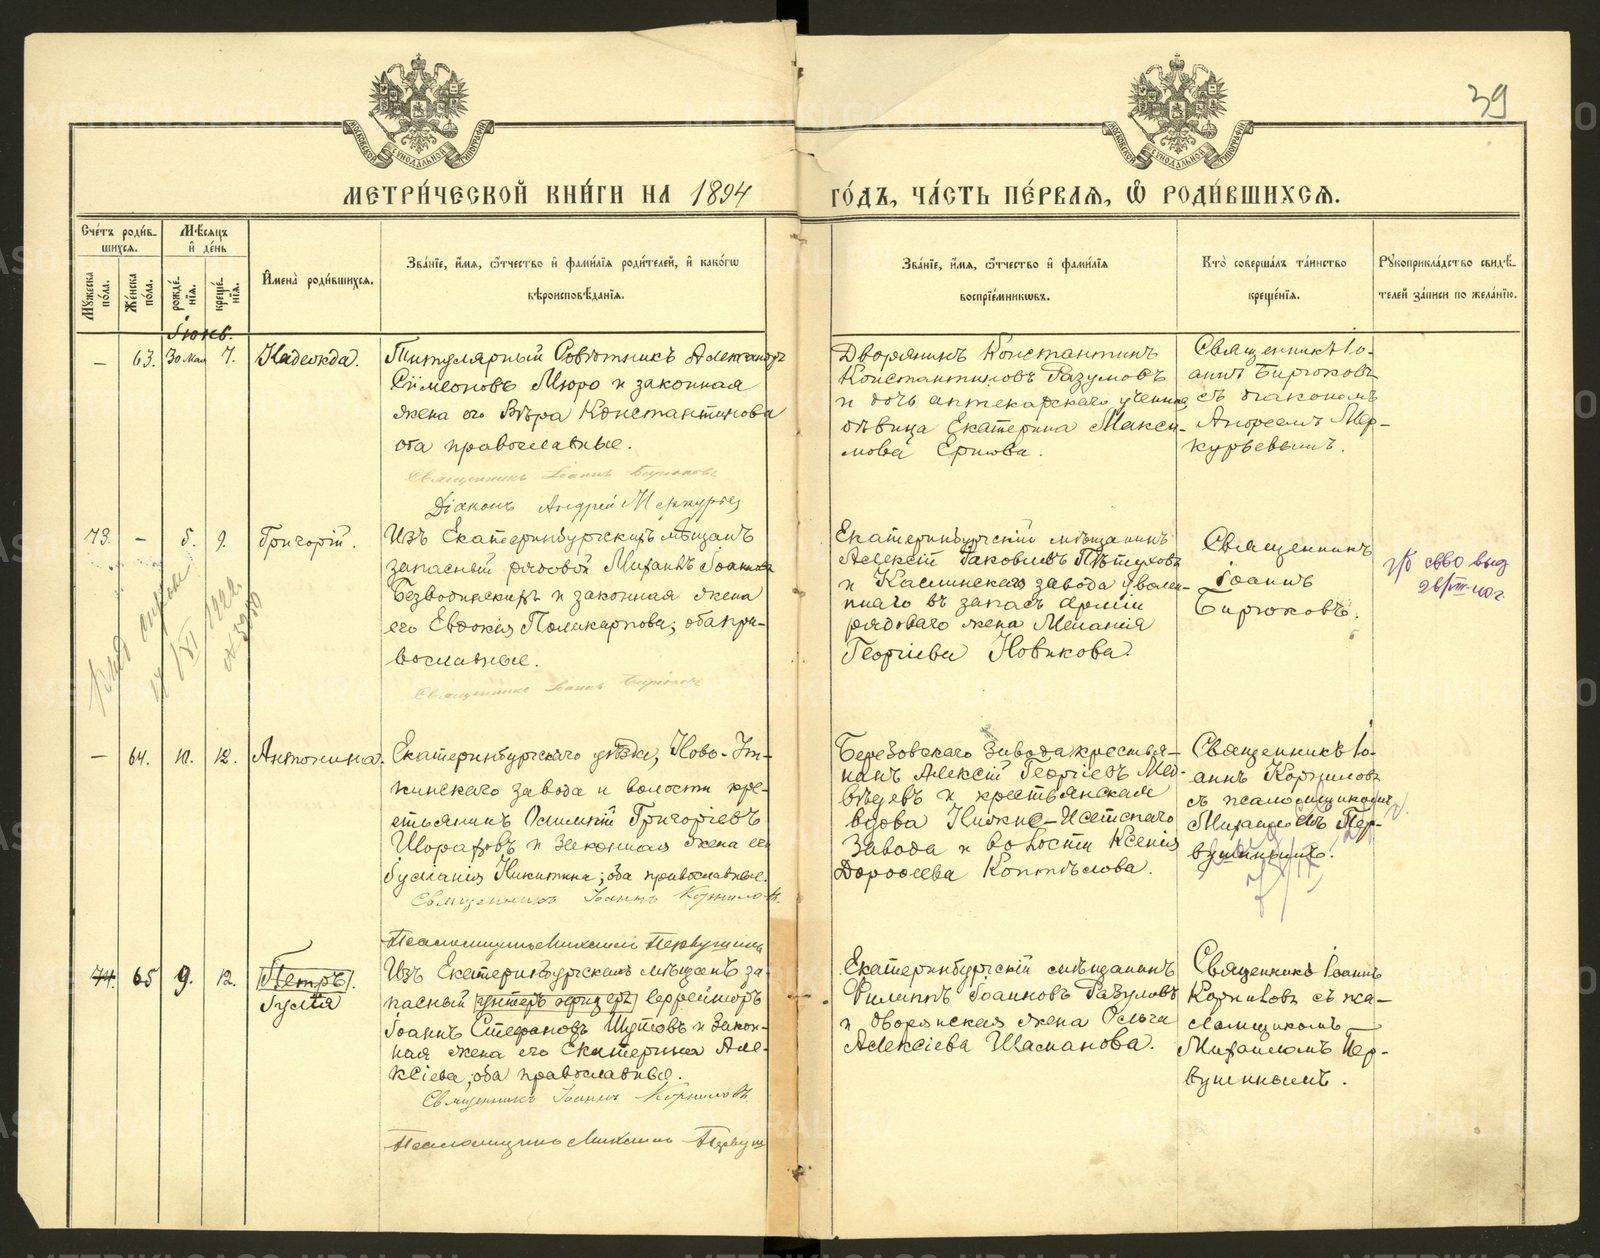 39
МОСКОВСКОЙ СѴНОДАЛЬНОЙ ТИПОГРАФІИ
МОСКОВСКОЙ СѴНОДАЛЬНОЙ ТИПОГРАФІИ
МЕТРИ́ЧЕСКОЙ КНИ́ГИ НА 1894 ГО́ДЪ, ЧА́СТЬ ПЕ́РВАЯ, Ѡ РОДИ́ВШИХСЯ.
Сче́тъ роди́в-
шихся.
Мꙋ́жеска по́ла.
Же́нска по́ла.
Мѣ́сяцъ
и де́нь
рожде́-
нія.
креще́-
нія.
Имена̀ роди́вшихся.
Зва́ніе, и́мя, ѻ́тчество и фами́лія роди́телей, и како́гѡ
вѣроисповѣ́данія.
Зва́ніе, и́мя, ѻ́тчество и фами́лія
воспріе́мниковъ.
Кто̀ соверша́лъ та́инство
креще́нія.
Рꙋкоприкла́дство свидѣ́-
телей за́писи по жела́нію.
Іюнь.
— 63. 30 Мая 7. Надежда.
Титулярный Совѣтникъ Александръ
Симеоновъ Мюро и законная
жена его Вѣра Константинова
оба православные.
Священникъ Іоаннъ Бирюковъ
Діаконъ Андрей Меркурьев
Дворянинъ Константинъ
Константиновъ Разумовъ
и дочь аптекарскаго ученика
дѣвица Екатерина Макси-
мова Ершова.
Священникъ Іо-
аннъ Бирюковъ
съ діакономъ
Андреемъ Мер-
курьевымъ.
73. — 5. 9. Григорій.
Изъ Екатеринбургскихъ мѣщанъ
запасный рядовой Михаилъ Іоанновъ
Безводинскихъ и законная жена
его Евдокія Поликарпова, оба пра-
вославные.
Священникъ Іоаннъ Бирюковъ
Екатеринбургскій мѣщанинъ
Алексій Іаковлевъ Пѣтуховъ
и Каслинскаго завода уволен-
наго въ запасъ арміи
рядоваго жена Меланія
Георгіева Новикова.
Священникъ
Іоаннъ
Бирюковъ.
— 64. 11. 12. Антонина.
Екатеринбургскаго уѣзда, Ново-Ут-
кинскаго завода и волости кре-
стьянинъ Григорьевъ
и законная жена его
Никитина, оба православные.
Священникъ Іоаннъ Корниловъ.
Псаломщикъ Михаилъ Первушинъ
Березовскаго Завода крестья-
нинъ Алексій Георгіевъ Мед-
вѣдевъ и крестьянская
вдова Нижне-Исетскаго
Завода и волости Ксенія
Дороѳеева Коптѣлова.
Священникъ Іо-
аннъ Корниловъ
съ псаломщикомъ
Михаиломъ Пер-
вушинымъ.
74. 65 9. 12. Петръ.
Іулія
Изъ Екатеринбургскихъ мѣщанъ за-
пасный унтеръ офицеръ ефрейторъ
Іоаннъ Стефановъ Шутовъ и закон-
ная жена его Екатерина Але-
ксіева, оба православные.
Священникъ Іоаннъ Корниловъ.
Псаломщикъ Михаилъ Первуш
Екатеринбургскій мѣщанинъ
Филиппъ Іоанновъ Разуловъ
и дворянская жена Ольга
Алексіева Шаманова.
Священникъ Іоаннъ
Корниловъ съ пса-
ломщикомъ
Михаиломъ Пер-
вушинымъ.